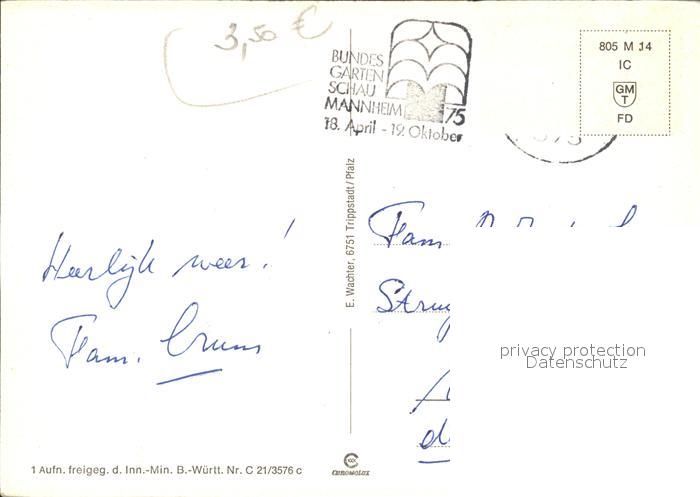 3,50 €
BUNDES
GARTEN
SCHAU
MANNHEIM 75
18. April - 19. Oktober
805 M 14
IC
GM
T
FD
E. Wachter, 6751 Trippstadt/Pfalz
Heerlijk weer!
Fam.
Fam
privacy protection
Datenschutz
1 Aufn. freigeg. d. Inn.-Min. B.-Württ. Nr. C 21/3576 c
CHROMOLUX